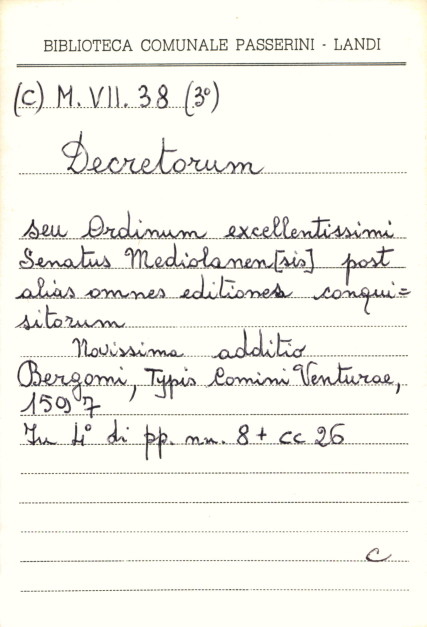 BIBLIOTECA COMUNALE PASSERINI - LANDI
(C) M. VII. 38 (3°)
Decretorum
seu Ordinum excellentissimi
Senatus Mediolanen[sis] post
alias omnes editiones conqui=
sitorum
Novissima additio
Bergomi, Typis Comini Venturae,
1597
In 4° di pp. nn. 8 + cc 26
C